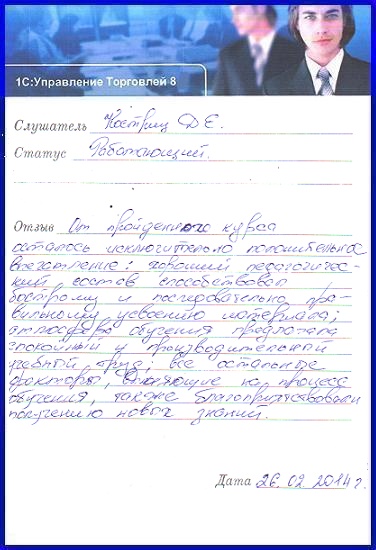 1С:Управление Торговлей 8
Слушатель Костриц Д.Е.
Статус Работающий.
Отзыв От пройденного курса
осталось исключительно положительное
впечатление: хороший педагогичес-
кий состав способствовал
быстрому и последовательно пра-
вильному усвоению материала;
атмосфера обучения предлагала
спокойный и производительный
учебный труд; все остальные
факторы, влияющие на процесс
обучения, также благоприятствовали
получению новых знаний.
Дата 26.02.2014г.